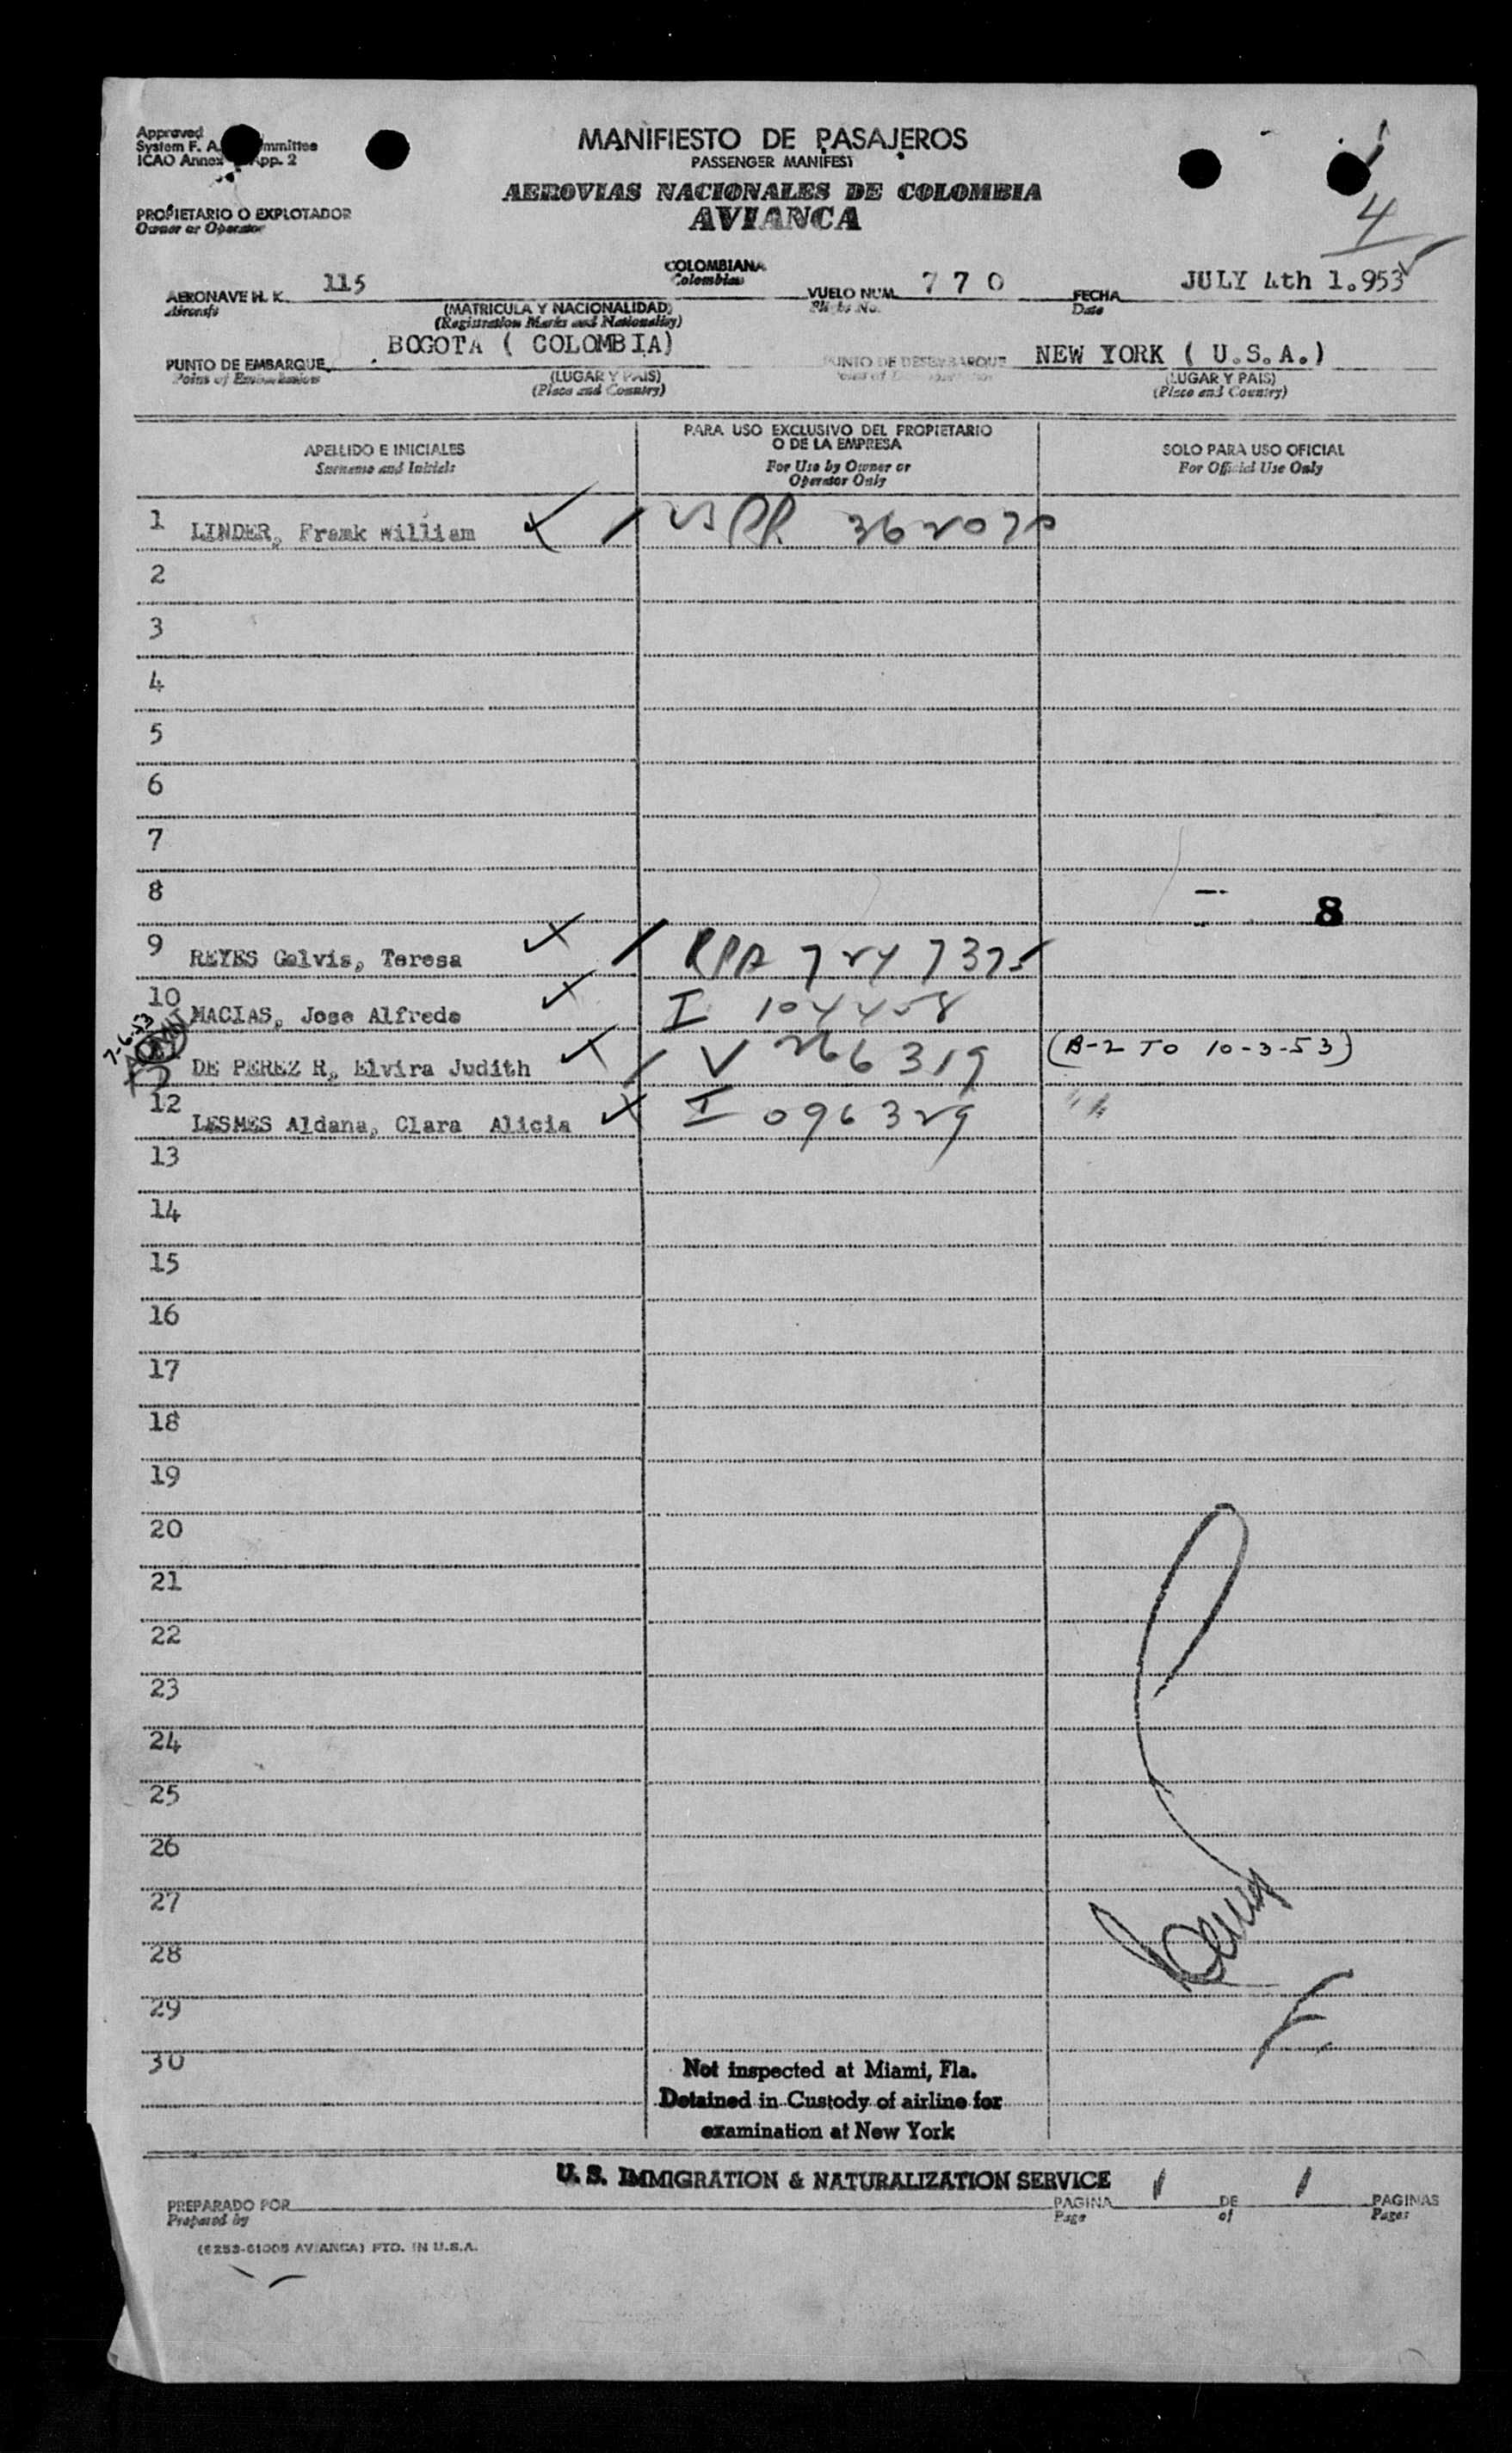 Approved
System F. A. mmittee
ICAO Annex App. 2
MANIFIESTO DE PASAJEROS
PASSENGER MANIFEST
AEROVIAS NACIONALES DE COLOMBIA
AVIANCA
4
PROPIETARIO O EXPLOTADOR
Owner or Operator
AERONAVE H. K. 115 COLOMBIANA VUELO NUM. 770 FECHA JULY 4th 1.953
Aircraft Colombian Flight No. Date
(MATRICULA Y NACIONALIDAD)
(Registration Marks and Nationality)
PUNTO DE EMBARQUE BOGOTA ( COLOMBIA) PUNTO DE DESEMBARQUE NEW YORK ( U.S.A.)
Point of Embarkation (LUGAR Y PAIS) (LUGAR Y PAIS)
(Place and Country) (Place and Country)
APELLIDO E INICIALES
Surname and Initials
PARA USO EXCLUSIVO DEL PROPIETARIO
O DE LA EMPRESA
For Use by Owner or
Operator Only
SOLO PARA USO OFICIAL
For Official Use Only
1 LINDER, Framk William USPP. 362070
2
3
4
5
6
7
8
8
9 REYES Galvis, Teresa RPA 7247375
10 MACIAS, Jose Alfredo I 104458
7-6-53
DE PEREZ R, Elvira Judith V 266319 (B-2 TO 10-3-53)
12 LESMES Aldana, Clara Alicia I 096329 "
13
14
15
16
17
18
19
20
21
22
23
24
25
26
27
28
29
30
Not inspected at Miami, Fla.
Detained in Custody of airline for
examination at New York
U. S. IMMIGRATION & NATURALIZATION SERVICE
PREPARADO POR PAGINA 1 DE 1 PAGINAS
Prepared by Page of Pages
(6253-61005 AVIANCA) PTD. IN U.S.A.